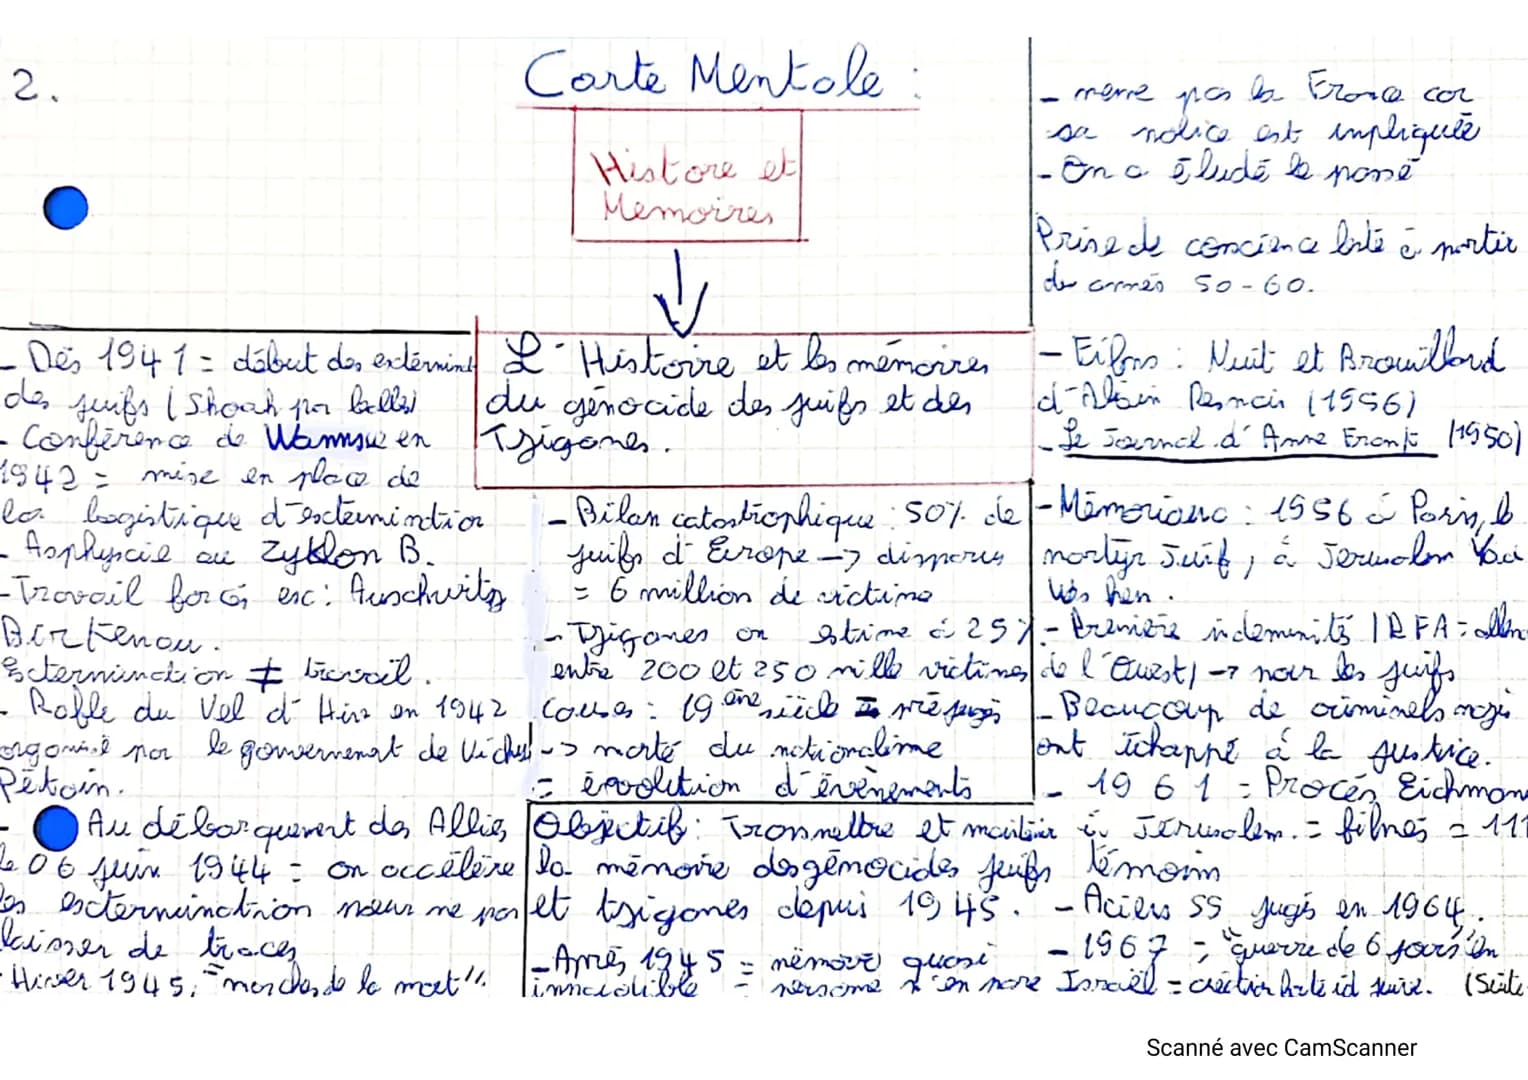 2.
Carte Mentale :
Histoire et
Memoires
L'Histoire et les mémoires
du génocide des juifs et des
Tsiganes.
- Dès 1941 = début des extermin
des juifs (Shoah par balles)
- Conférence de Wannsee en
1942 = mise en place de
la logistique d'extermination
- Asphyxie au Zyklon B.
- Travail forcé, ex : Auschwitz
Birkenau.
Extermination ≠ travail.
- Rafle du Vel d'Hiv en 1942
organisé par le gouvernement de Vichy
Pétain.
- Au débarquement des Alliés
le 06 juin 1944 = on accélère
les extermination pour ne pas
laisser de traces
- Hiver 1945, = "marches de la mort".
- Bilan catastrophique : 50% de
juifs d'Europe -> disparus
= 6 million de victime
- Tsiganes on estime à 25%
entre 200 et 250 mille victimes
Causes : 19 ème siècle = préjugés
-> montée du nationalime
= évolution d'évènements
Objectif : Transmettre et maintenir
la mémoire des génocides juifs
et tsiganes depuis 1945.
- Après 1945 = mémoire quasi
= personne n'en parle
- même pas la France car
sa police est impliquée
- On a éludé le passé
Prise de concience lente à partir
des années 50-60.
- Films : Nuit et Brouillard
d'Alain Resnais (1956)
- Le Journal d'Anne Frank (1950)
- Mémoriaux : 1956 à Paris, le
martyr Juif, à Jerusalem Yad
- Première indemnités (RFA = allem
de l'Ouest) -> pour les juifs
- Beaucoup de criminels nazis
ont échappé à la justice.
- 1961 = Procès Eichmann
à Jérusalem. = filmés = 111
témoins
- Aciers SS jugés en 1964.
- 1967 = "guerre de 6 jours" en
Israël = création juive. (Suite
Scanné avec CamScanner